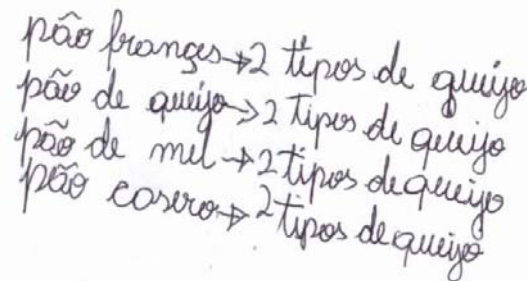 pão franges → 2 tipos de queijo
pão de queijo → 2 tipos de queijo
pão de mel → 2 tipos de queijo
pão casero → 2 tipos de queijo